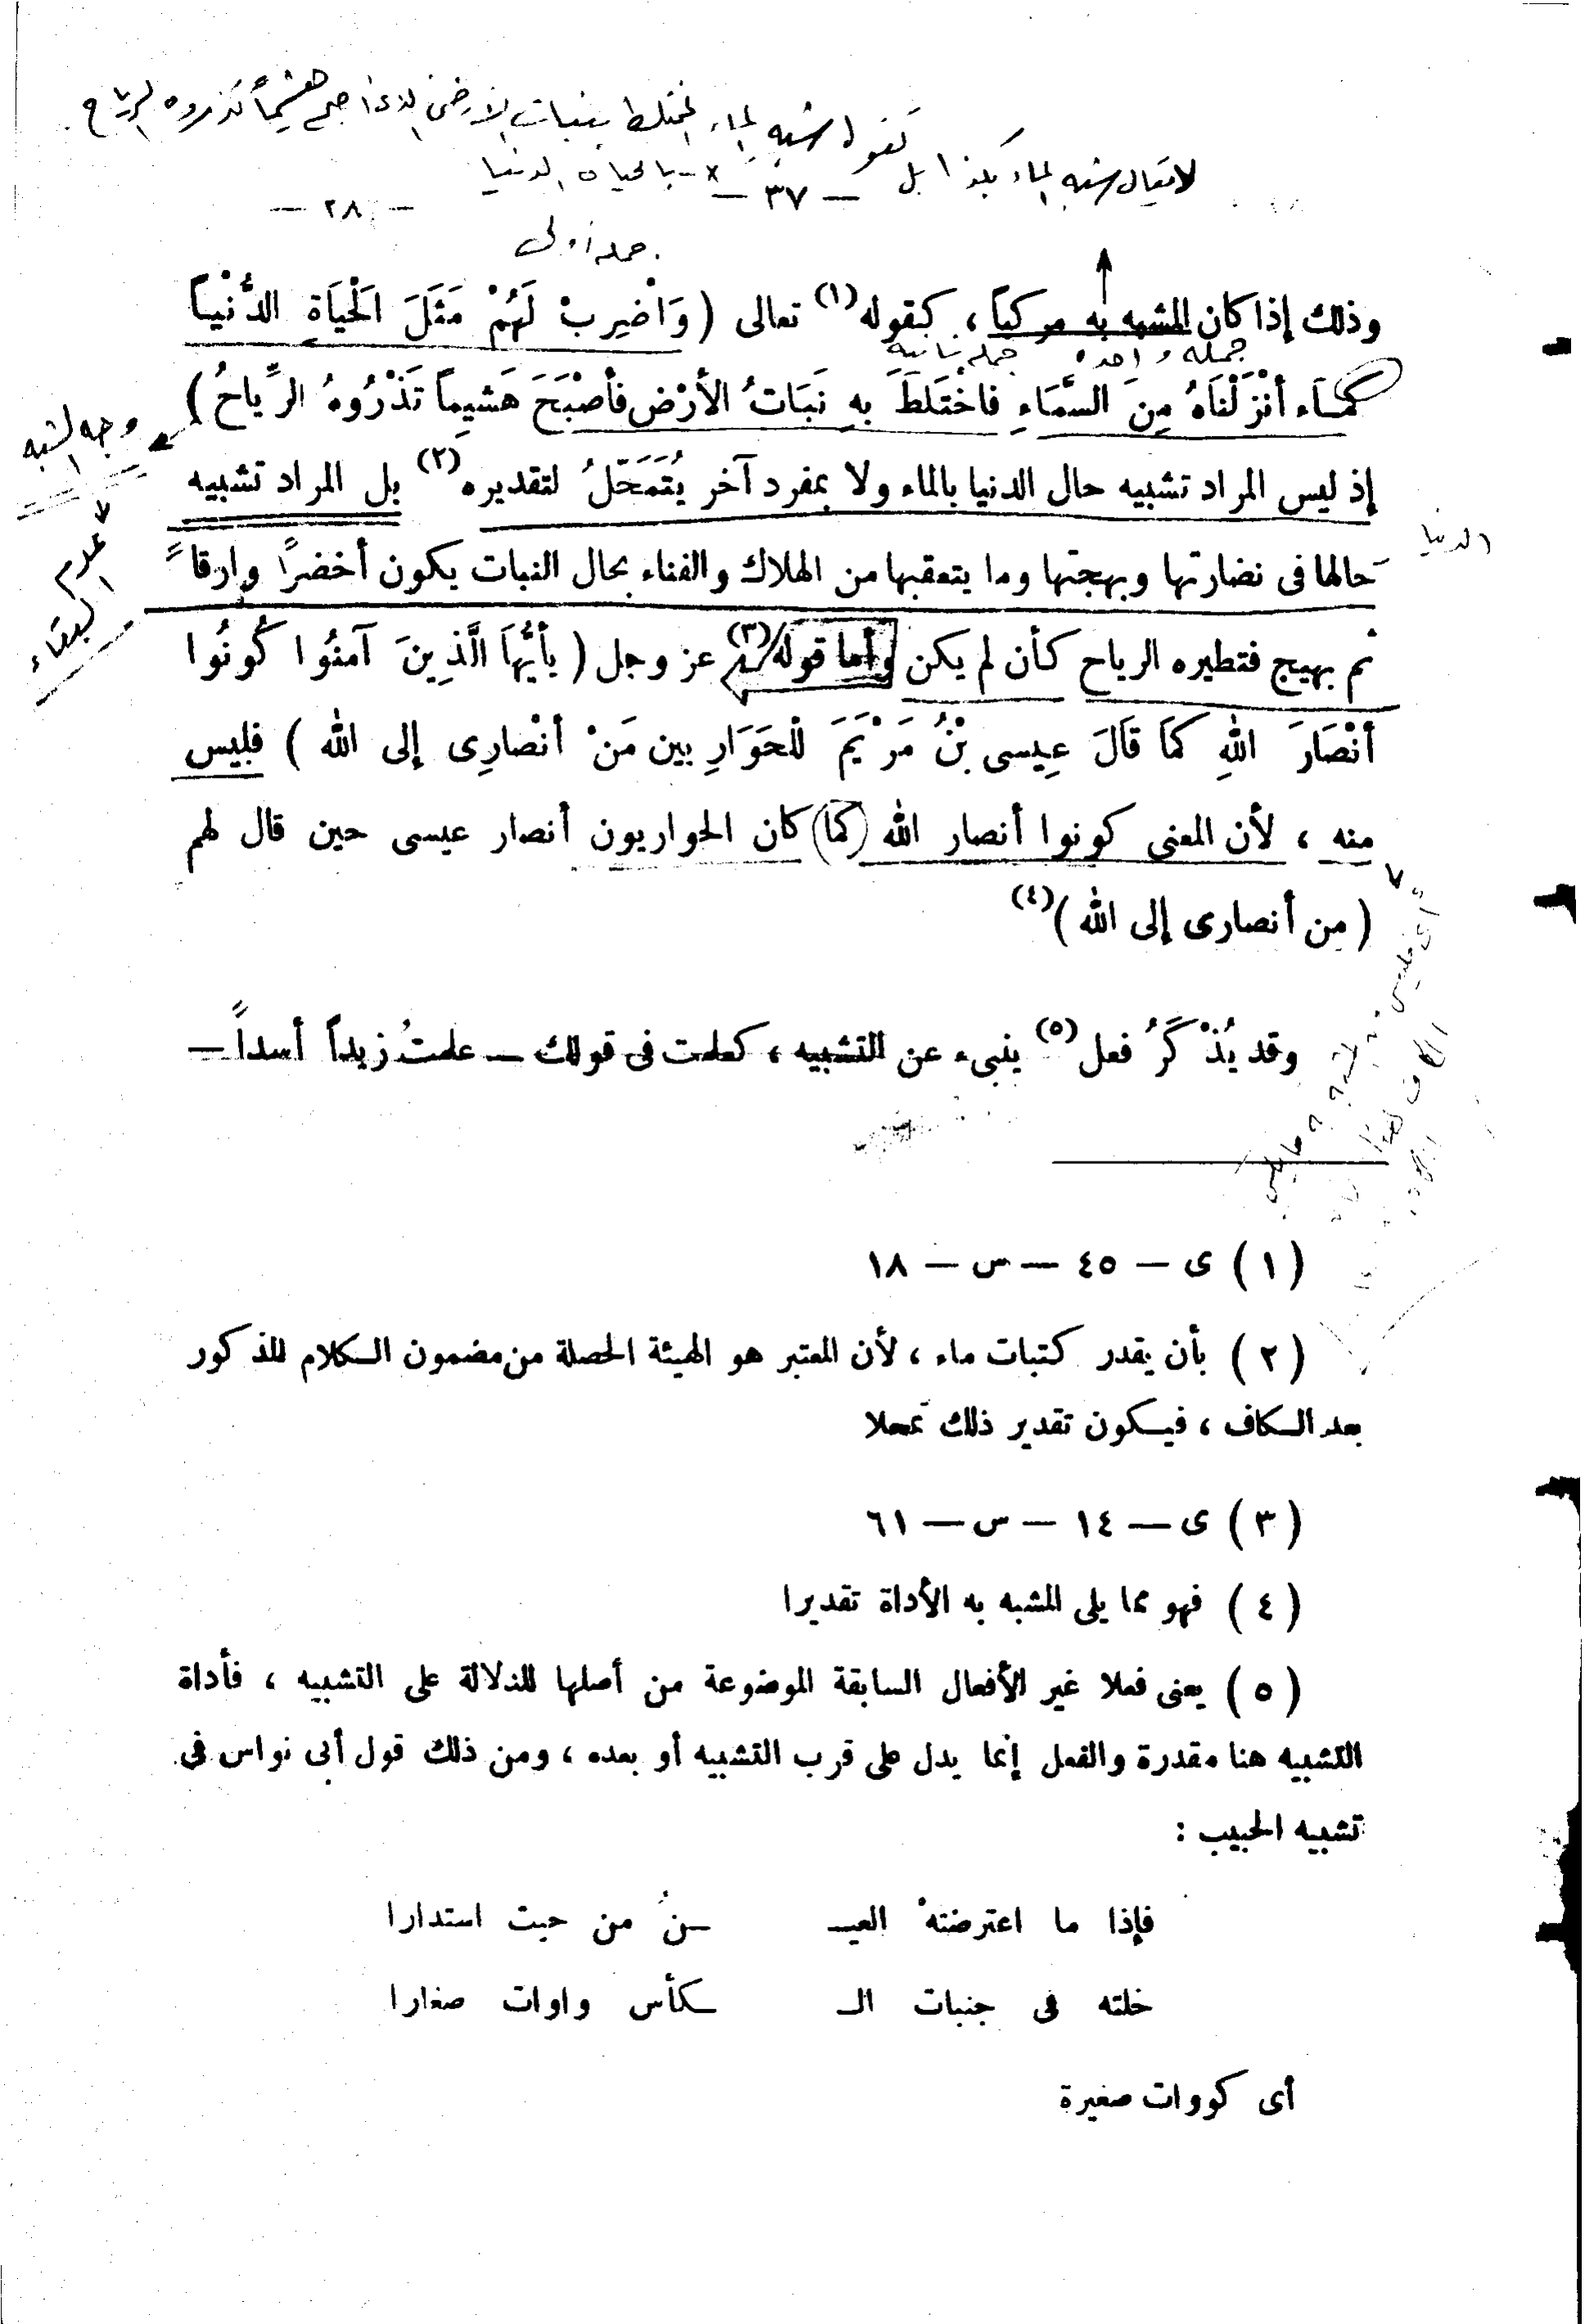 كقوله شبه الماء المختلط بنبات الأرض الذي أصبح هشيماً تذروه الرياح
لا يقال شبه الماء بكذا بل
— ٣٧ — × بالحياة الدنيا
— ٢٨ —
جملة أولى
وذلك إذا كان المشبه به مركباً ، كقوله (١) تعالى ( وَاضْرِبْ لَهُمْ مَثَلَ الْحَيَاةِ الدُّنْيَا
جملة واحدة جملة ثانية
كَمَاء أَنْزَلْنَاهُ مِنَ السَّمَاءِ فاخْتَلَطَ بِهِ نَبَاتُ الأرْض فأصْبَحَ هَشيِماً تَذْرُوهُ الرِّياحُ )
وجه الشبه
إذ ليس المراد تشبيه حال الدنيا بالماء ولا بمفرد آخر يُتَمَحَّلُ لتقديره (٢) بل المراد تشبيه
الدنيا
عدم البقاء
حالها فى نضارتها وبهجتها وما يتعقبها من الهلاك والفناء بحال النبات يكون أخضراً وارقاً
ثم يهيج فتطيره الرياح كأن لم يكن وأما قوله (٣) عز وجل ( يأَيُّهَا الَّذِينَ آمَنُوا كُونُوا
أنْصَارَ اللهِ كَمَا قَالَ عِيسى بْنُ مَرْيَمَ لْلحَوَارِ يين مَنْ أنْصارِى إلى الله ) فليس
منه ، لأن المعنى كونوا أنصار الله (كما) كان الحواريون أنصار عيسى حين قال لهم
( من أنصارى إلى الله ) (٤)
وقد يُذْكَرُ فعل (٥) ينبىء عن التشبيه ، كعلمت فى قولك — علمتُ زيداً أسداً —
( ١ ) ى — ٤٥ — س — ١٨
( ٢ ) بأن يقدر كنبات ماء ، لأن المعتبر هو الهيئة الحصلة من مضمون الكلام المذكور
بعد الكاف ، فيكون تقدير ذلك تمحلا
( ٣ ) ى — ١٤ — س — ٦١
( ٤ ) فهو مما يلى المشبه به الأداة تقديرا
( ٥ ) يعنى فعلا غير الأفعال السابقة الموضوعة من أصلها للدلالة على التشبيه ، فأداة
التشبيه هنا مقدرة والفعل إنما يدل على قرب التشبيه أو بعده ، ومن ذلك قول أبى نواس فى
تشبيه الحبيب :
فإذا ما اعترضته العيـ ـنُ من حيث استدارا
خلته فى جنبات الـ ـكأس واوات صغارا
أى كووات صغيرة